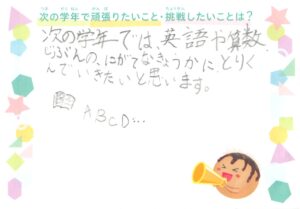 次の学年で頑張りたいこと・挑戦したいことは？
次の学年では、英語や算数、
じぶんの、にがてなきょうかにとりく
んでいきたいと思います。
ABCD…